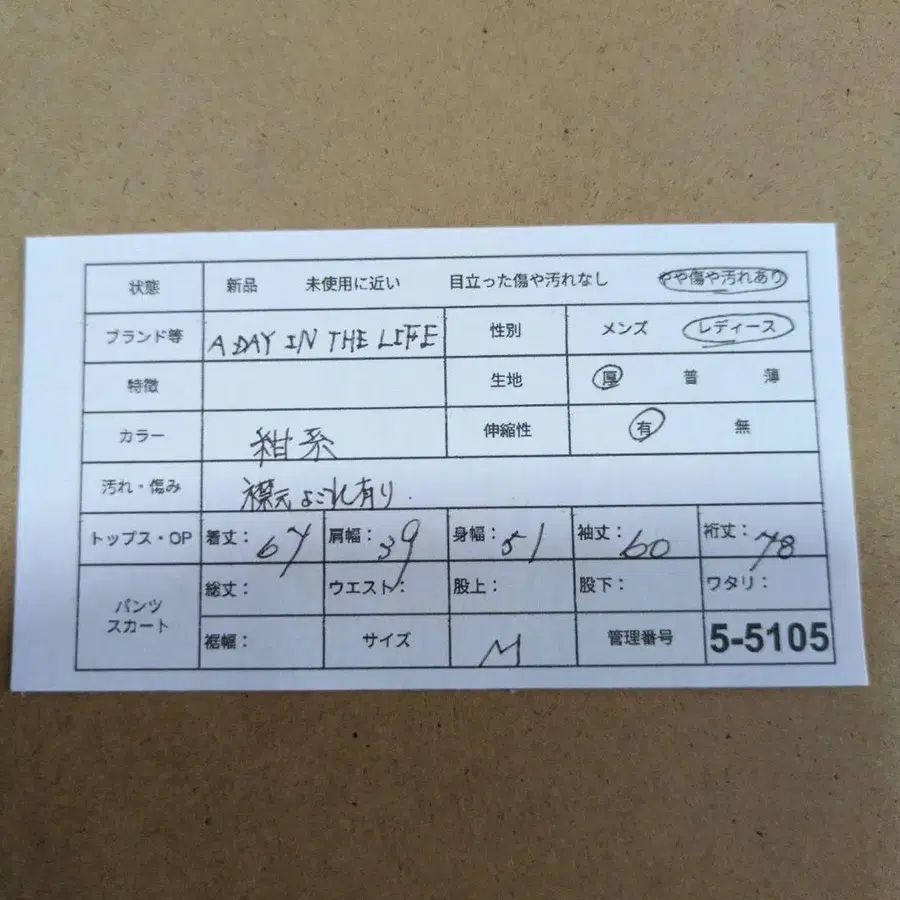 状態 新品 未使用に近い 目立った傷や汚れなし やや傷や汚れあり
ブランド等 A DAY IN THE LIFE 性別 メンズ レディース
特徴 生地 厚 普 薄
カラー 紺系 伸縮性 有 無
汚れ・傷み 襟元よごれ有り.
トップス・OP 着丈: 67 肩幅: 39 身幅: 51 袖丈: 60 裄丈: 78
パンツ スカート 総丈: ウエスト: 股上: 股下: ワタリ:
裾幅: サイズ M 管理番号 5-5105